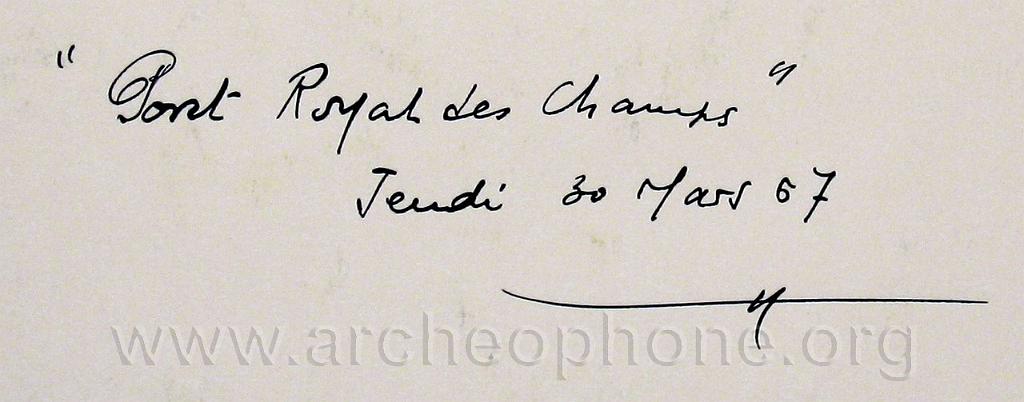 " Port Royal des Champs "
Jeudi 30 Mars 67
www.archeophone.org